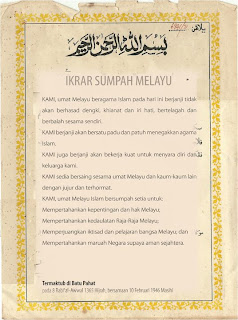 بسم الله الرحمن الرحيم
IKRAR SUMPAH MELAYU
KAMI, umat Melayu beragama Islam pada hari ini berjanji tidak
akan berhasad dengki, khianat dan iri hati, bertelagah dan
berbalah sesama sendiri.
KAMI berjanji akan bersatu padu dan patuh menegakkan agama
Islam.
KAMI juga berjanji akan bekerja kuat untuk menyara diri dan
keluarga kami.
KAMI sedia bersaing sesama umat Melayu dan kaum-kaum lain
dengan jujur dan terhormat.
KAMI, umat Melayu Islam bersumpah setia untuk:
Mempertahankan kepentingan dan hak Melayu;
Mempertahankan kedaulatan Raja-Raja Melayu;
Memperjuangkan iktisad dan pelajaran bangsa Melayu dan
Mempertahankan maruah Negara supaya aman sejahtera.
Termaktub di Batu Pahat
pada 8 Rabi'ul-Awwal 1365 Hijrah, bersamaan 10 Februari 1946 Masihi